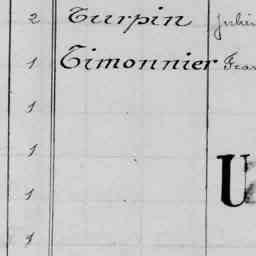 2 Turpin Julien
1 Timonnier Fran
1
1
U
1
1